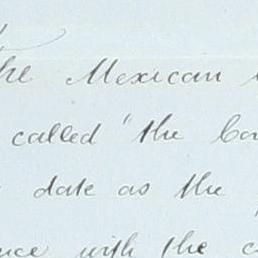 The Mexican
called "the
date as the
with the